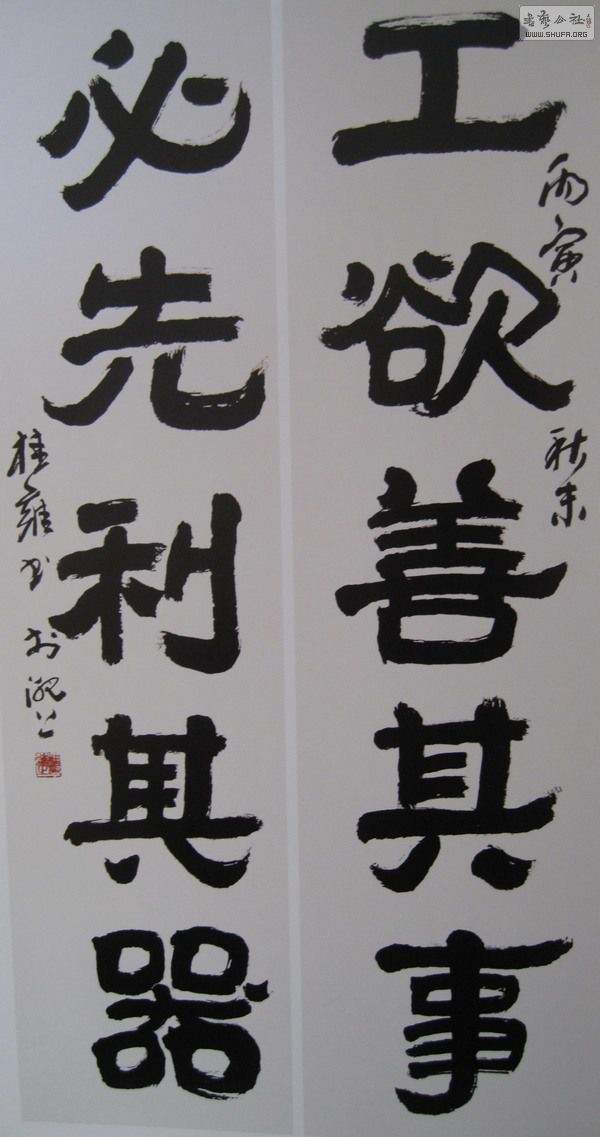 工欲善其事
丙寅
秋末
必先利其器
桂雍书于沪上
书艺公社
WWW.SHUFA.ORG